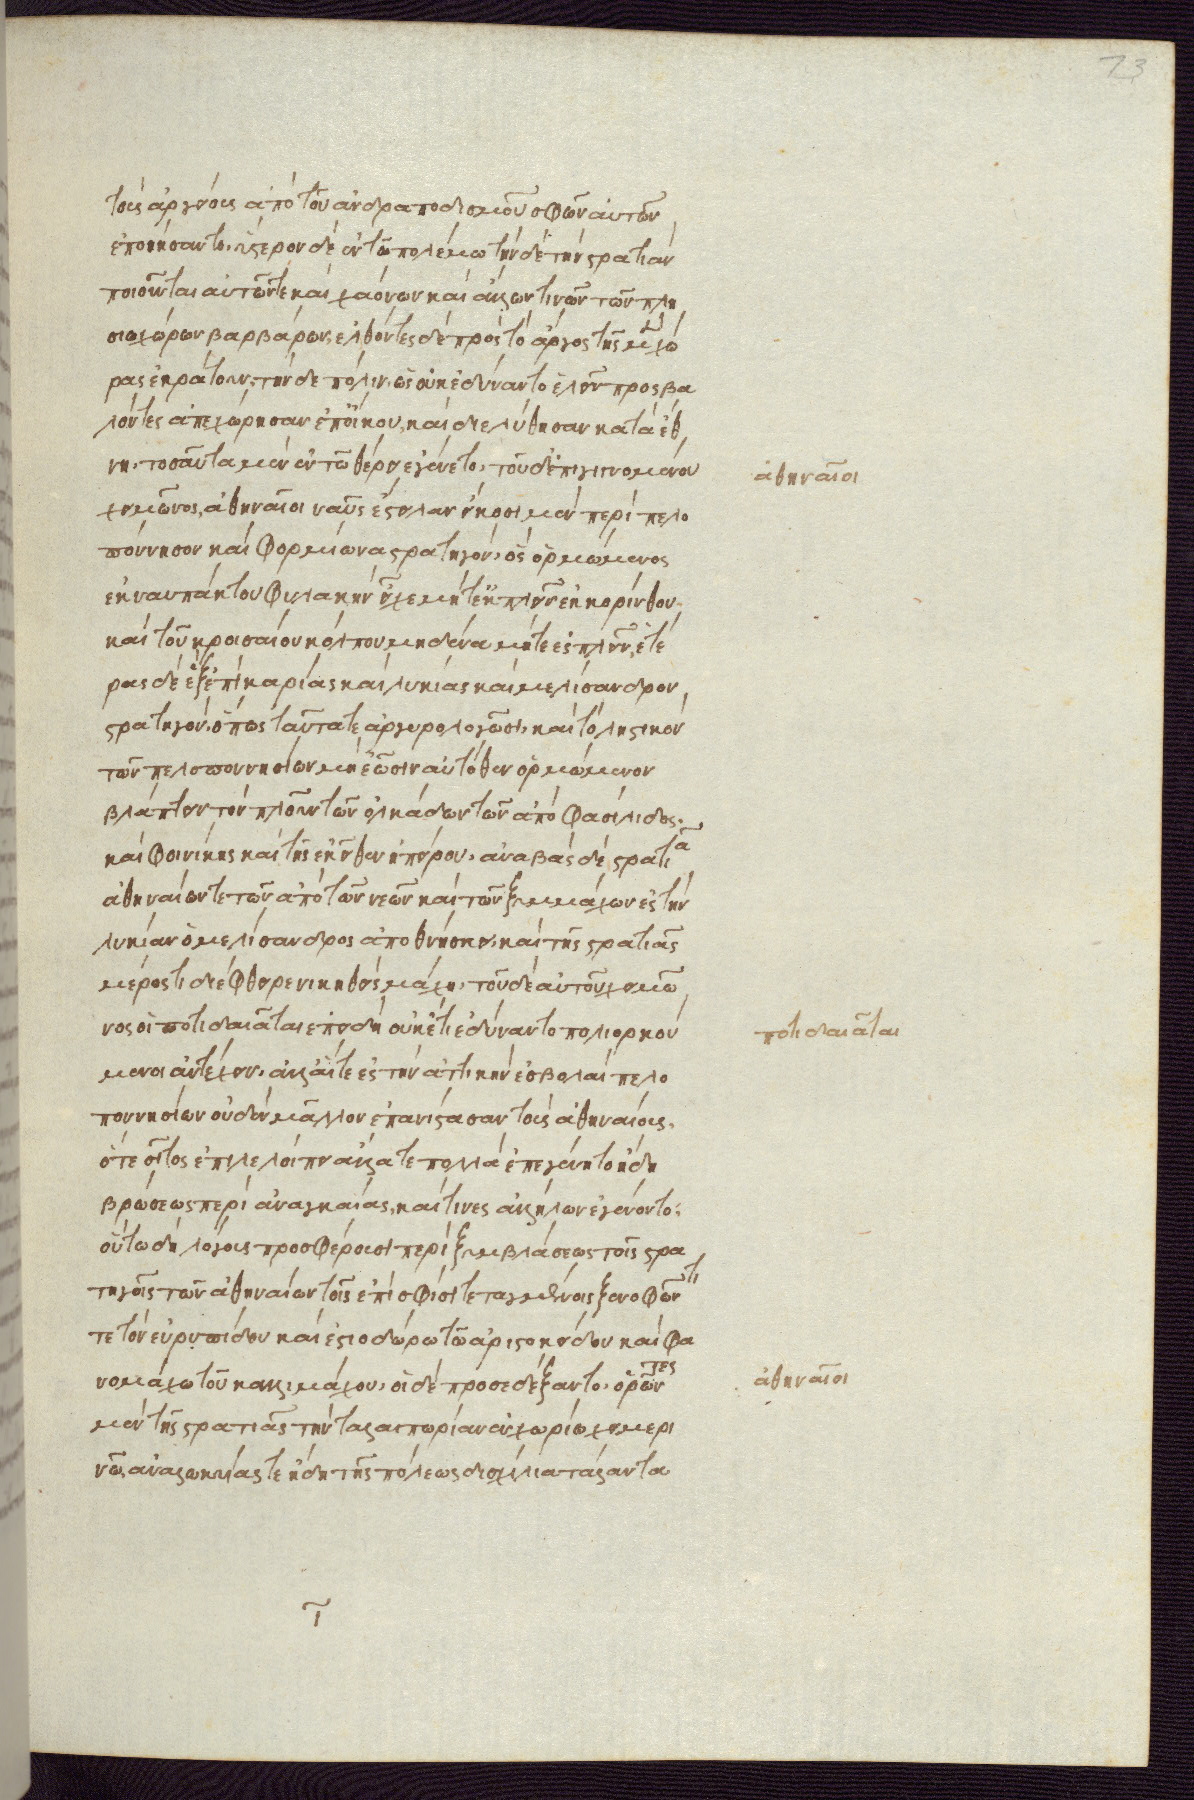 73
τοὺς ἀργείους ἀπὸ τοῦ ἀνδραποδισμοῦ σφῶν αὐτῶν
ἐποιήσαντο· ὕστερον δὲ ἐν τῶ πολέμω τήνδε τὴν στρατιὰν
ποιοῦνται αὐτῶν τε καὶ χαόνων καὶ ἄλλων τινῶν τῶν πλη
σιοχώρων βαρβάρων, ἐλθόντες δὲ πρὸς τὸ ἄργος τῆς μὲν χώ
ρας ἐκράτουν· τὴν δὲ πόλιν, ὡς οὐκ ἐδύναντο ἑλεῖν προσβα
λόντες ἀπεχώρησαν ἐπ' οἴκου, καὶ διελύθησαν κατὰ ἔθ
νη. τοσαῦτα μὲν ἐν τῶ θέρει ἐγένετο. τοῦ δ' ἐπιγινομένου
ἀθηναῖοι
χειμῶνος, ἀθηναῖοι ναῦς ἔστειλαν εἴκοσι μὲν περὶ πελο
πόννησον καὶ φορμίωνα στρατηγόν· ὃς ὁρμώμενος
ἐκ ναυπάκτου φυλακὴν εἶχε μήτε ἐκπλεῖν ἐκ κορίνθου·
καὶ τοῦ κρισαίου κόλπου μηδένα μήτε ἐσπλεῖν, ἑτέ
ρας δὲ ἓξ ἐπὶ καρίας καὶ λυκίας καὶ μελίσανδρον
στρατηγόν, ὅπως ταῦτά τε ἀργυρολογῶσι, καὶ τὸ ληστικὸν
τῶν πελοποννησίων μὴ ἐῶσιν αὐτόθεν ὁρμώμενον
βλάπτειν τὸν πλοῦν τῶν ὁλκάδων τῶν ἀπὸ φασίλιδος·
καὶ φοινίκης καὶ τῆς ἐκεῖθεν ἠπείρου. ἀναβὰς δὲ στρατιᾶ
ἀθηναίων τε τῶν ἀπὸ τῶν νεῶν καὶ τῶν ξυμμάχων ἐς τὴν
λυκίαν ὁ μελίσανδρος ἀποθνήσκει, καὶ τῆς στρατιᾶς
μέρος τι διέφθειρε νικηθεὶς μάχη. τοῦ δὲ αὐτοῦ χειμῶ
νος οἱ ποτιδαιᾶται ἐπειδὴ οὐκέτι ἐδύναντο πολιορκού
ποτιδαιᾶται
μενοι ἀντέχειν, ἀλλ' αἵ τε ἐς τὴν ἀττικὴν ἐσβολαὶ πελο
ποννησίων οὐδὲν μᾶλλον ἐπανίστασαν τοὺς ἀθηναίους.
ὅ τε σῖτος ἐπιλελοίπει ἄλλα τε πολλὰ ἐπεγένητο ἤδη
βρώσεως πέρι ἀναγκαίας, καὶ τινες ἀλλήλων ἐγέγοντο·
οὕτω δὴ λόγους προσφέρουσι περὶ ξυμβάσεως τοῖς στρα
τηγοῖς τῶν ἀθηναίων τοῖς ἐπὶ σφίσι τεταγμένοις ξενοφῶντι
τε τὸν εὐριπίδου καὶ ἑστιοδώρω τῶ ἀριστοκλείδου καὶ φα
νομάχω τοῦ καλλιμάχου. οἱ δὲ προσεδέξαντο, ὁρῶντες
ἀθηναῖοι
μὲν τῆς στρατιᾶς τὴν ταλαιπωρίαν ἐν χωρίω χειμερι
νῶ, ἀναλωκυίας τε ἤδη τῆς πόλεως δισχίλια τάλαντα